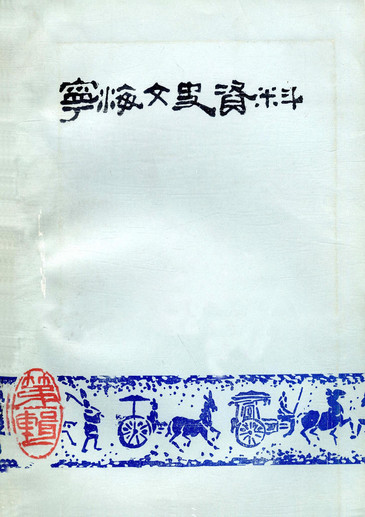 寧海文史資料
第輯